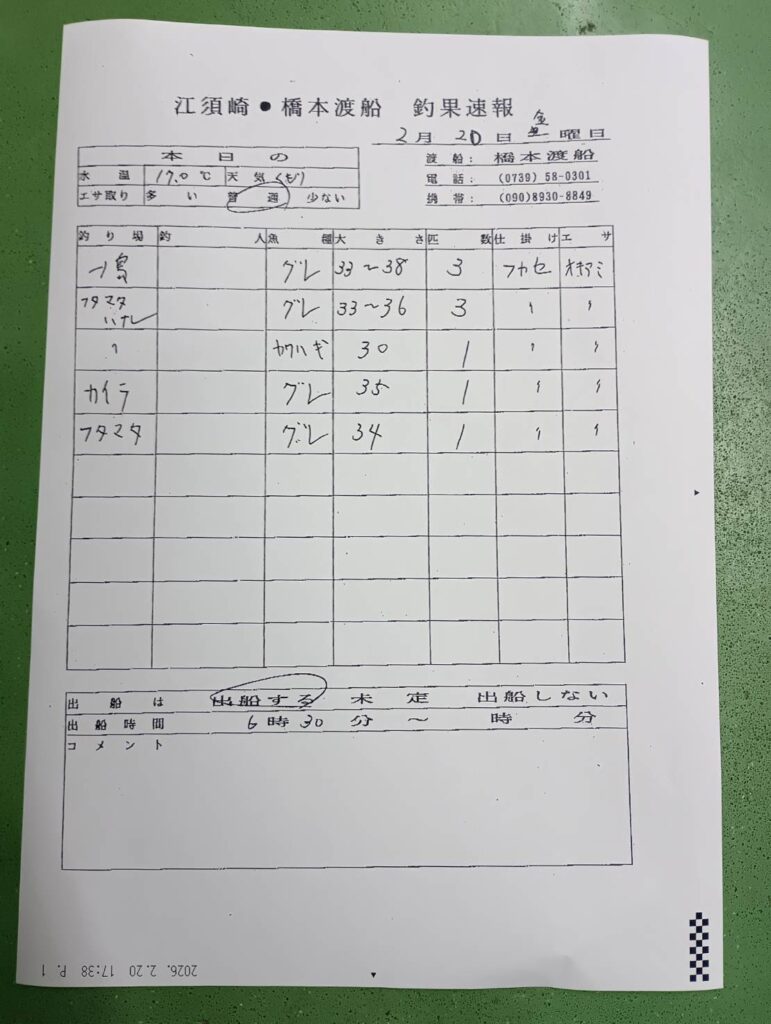 江須崎●橋本渡船 釣果速報
2月 20日 金曜日
本日の
水温 17.0℃ 天気 くもり
エサ取り 多い 普通 少ない
渡船: 橋本渡船
電話: (0739) 58-0301
携帯: (090)8930-8849
釣り場 釣人 魚種 大きさ 匹数 仕掛け エサ
島 グレ 33〜38 3 フカセ オキアミ
フタマタハナレ グレ 33〜36 3 〃 〃
〃 カワハギ 30 1 〃 〃
カイラ グレ 35 1 〃 〃
フタマタ グレ 34 1 〃 〃
出船は 出船する 未定 出船しない
出船時間 6時30分〜 時 分
コメント
2026. 2.20 17:38 P. 1